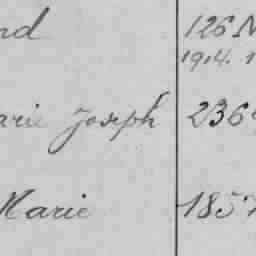 nd 126 N
1914. 1
arie Joseph 236
Marie 1857